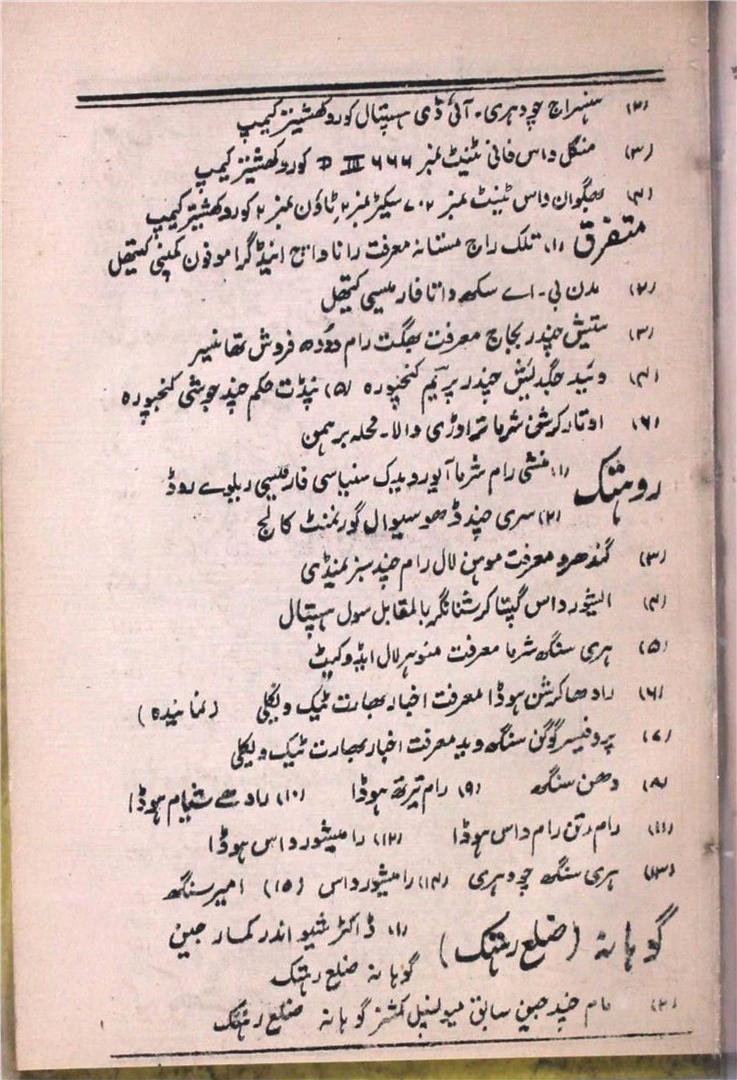 (۲) ہنسراج چودھری۔ آئی ڈی ہسپتال کوروکھشیتر کیمپ
(۳) منگل داس فانی ٹنیٹ نمبر ۶۶۶ III D کوروکھشیتر کیمپ
(۴) بھگوان داس ٹینٹ نمبر ۷۰۲ سیکڑ نمبر ۲ ٹاؤن نمبر ۲ کوروکھشیتر کیمپ
متفرق (۱) تلک راج مستانہ معرفت رانا واچ اینڈ گراموفون کمپنی کیتھل
(۲) مدن بی۔ اے سکھ داتا فارمیسی کیتھل
(۳) ستیش چندر بجاج معرفت بھگت رام دودھ فروش تھانیسر
(۴) وئید جگدیش چندر پریم کنجپورہ (۵) پنڈت حکم چند جوشی کنجپورہ
(۶) اوتار کرشن شرما تراوڑی والا۔ محلہ برہمن
روہتک (۱) منشی رام شرما آیورویدک سنیاسی فارمیسی ریلوے روڈ
(۲) سری چند ڈھوسیوال گورنمنٹ کالج
(۳) گندھرو معرفت موہن لال رام چند سبز منڈی
(۴) ایشور داس گپتا کرشنا نگر بالمقابل سول ہسپتال
(۵) ہری سنگھ شرما معرفت منوہر لال ایڈوکیٹ
(۶) رادھا کرشن ہوڈا معرفت اخبار بھارت ٹیک ویکلی (نمائیندہ)
(۷) پروفیسر گوگن سنگھ وید معرفت اخبار بھارت ٹیک ویکلی
(۸) دھن سنگھ (۹) رام تیرتھ ہوڈا (۱۰) رادھے شیام ہوڈا
(۱۱) رام رتن رام داس ہوڈا (۱۲) رامیشور داس ہوڈا
(۱۳) ہری سنگھ چودھری (۱۴) رامیشور داس (۱۵) امیر سنگھ
گوہانہ (ضلع رہتک) (۱) ڈاکٹر شیو اندر کمار جین
گوہانہ ضلع رہتک
(۲) رام چند جین سابق میونسپل کمشنر گوہانہ ضلع رہتک